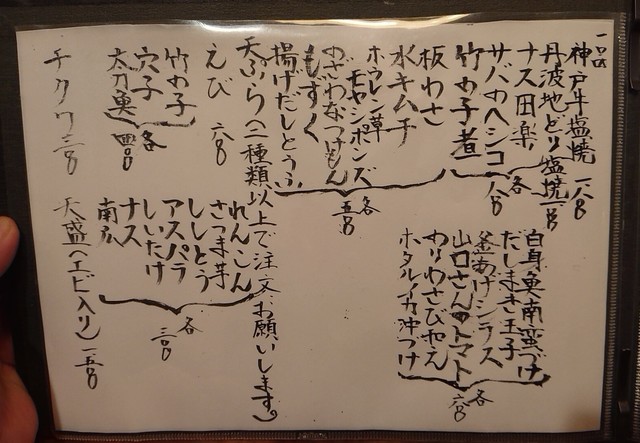 一品
神戸牛塩焼 一八〇〇
丹波地どり塩焼 一一〇〇
ナス田楽
サバのヘシコ
竹の子煮
各 八〇〇
板わさ
水キムチ
ホウレン草
モヤシポンズ
のざわなつけもん
もずく
揚げだしとうふ
各 五〇〇
白身魚南蛮づけ
だしまき玉子
釜あげシラス
山口さんのトマト
わりわさびあえ
ホタルイカ沖つけ
各 六〇〇
天ぷら(二種類以上で注文お願いします。)
えび 六〇〇
竹の子
穴子
太刀魚
各 四〇〇
チクワ 二〇〇
れんこん
さつま芋
ししとう
アスパラ
しいたけ
ナス
南瓜
各 三〇〇
天盛(エビ入り) 一五〇〇